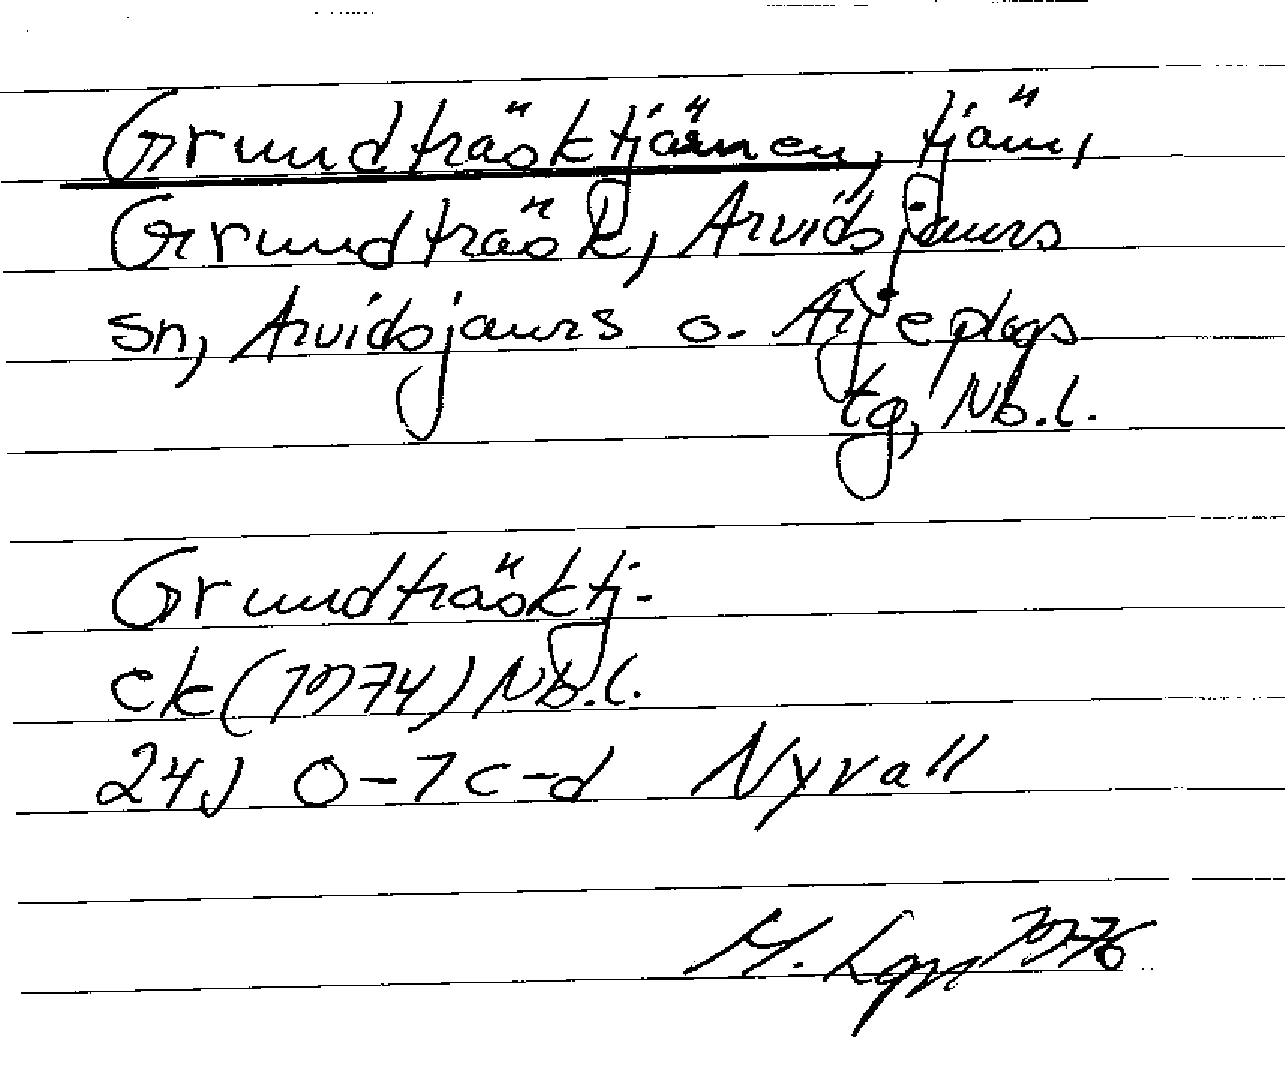 Grundträsktjärnen, tjärn,
Grundträsk, Arvidsjaurs
sn, Arvidsjaurs o. Arjeplogs
tg, Nb.l.
Grundträsktj.
ek (1974) Nb.l.
24J 0-7 c-d Nyvall
M. 1976